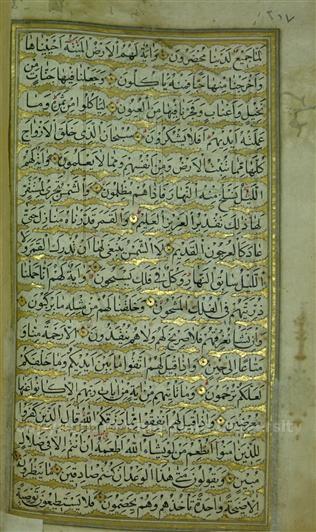 ٢١٧
لما جميع لدينا محضرون واية لهم الارض الميتة احييناها
واخرجنا منها حبا فمنه ياكلون وجعلنا فيها جنات من
نخيل واعناب وفجرنا فيها من العيون لياكلوا من ثمره وما
عملته ايديهم افلا يشكرون سبحان الذي خلق الازواج
كلها مما تنبت الارض ومن انفسهم ومما لا يعلمون واية لهم
الليل نسلخ منه النهار فاذا هم مظلمون والشمس تجري لمستقر
لها ذلك تقدير العزيز العليم والقمر قدرناه منازل حتى
عاد كالعرجون القديم لا الشمس ينبغي لها ان تدرك القمر ولا
الليل سابق النهار وكل في فلك يسبحون واية لهم انا حملنا
ذريتهم في الفلك المشحون وخلقنا لهم من مثله ما يركبون
وان نشا نغرقهم فلا صريخ لهم ولا هم ينقذون الا رحمة منا و
متاعا الى حين واذا قيل لهم اتقوا ما بين ايديكم وما خلفكم
لعلكم ترحمون وما تاتيهم من اية من ايات ربهم الا كانوا عنها
معرضين واذا قيل لهم انفقوا مما رزقكم الله قال الذين كفروا
للذين امنوا انطعم من لو يشاء الله اطعمه ان انتم الا في ضلال
مبين ويقولون متى هذا الوعد ان كنتم صادقين ما ينظرون
الا صيحة واحدة تاخذهم وهم يخصمون فلا يستطيعون توصية